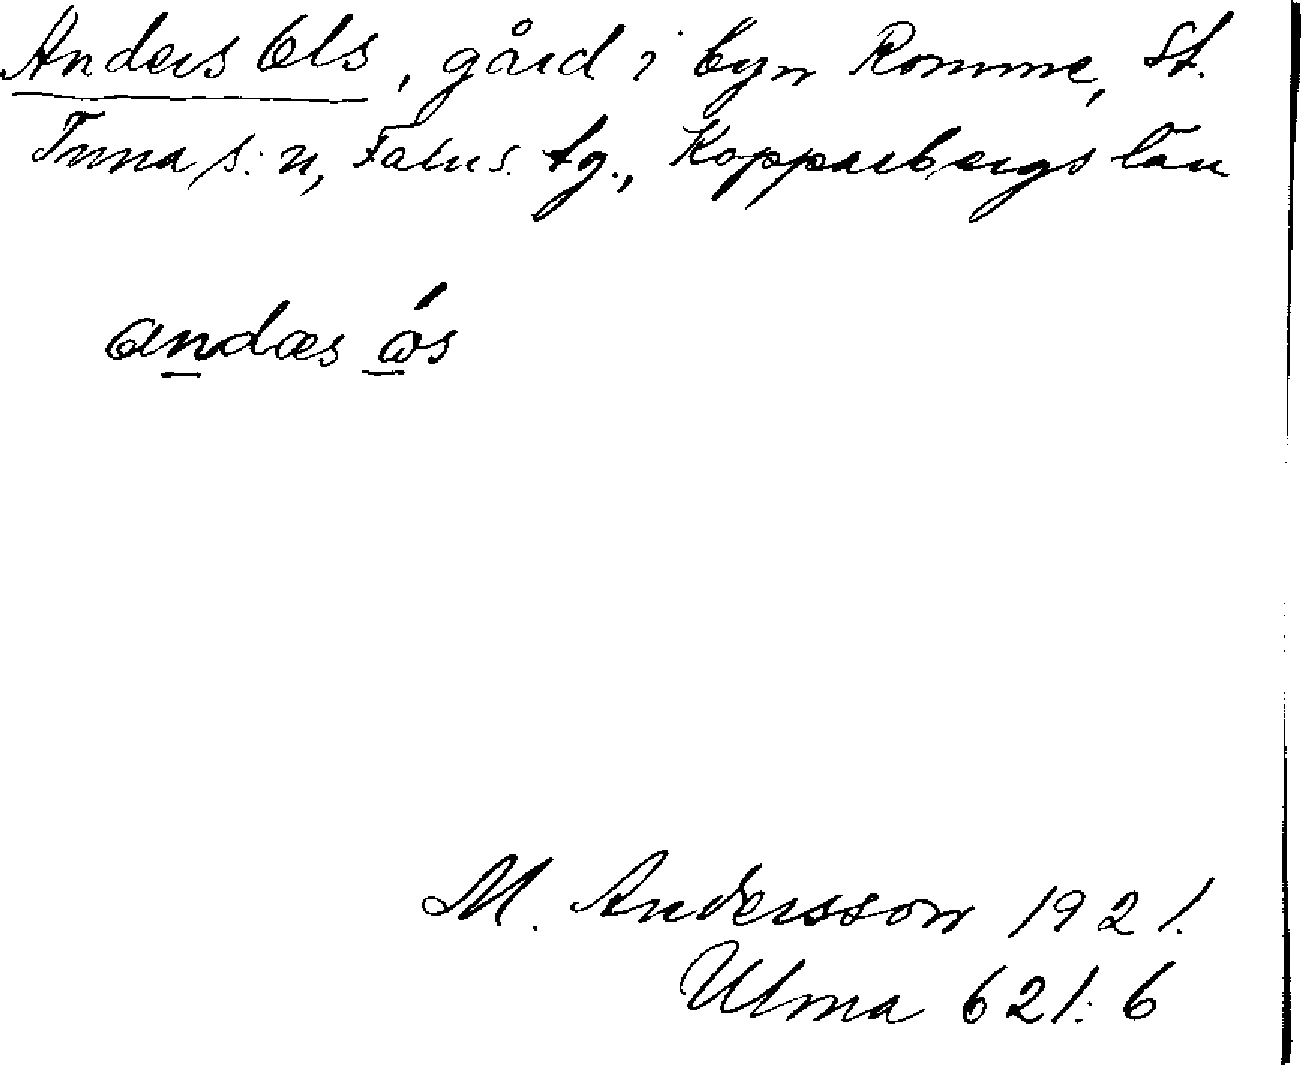 Anders Ols, gård i byn Romme, St.
Tuna s:n, Falu s. tg., Kopparbergs län
andæs ós
M. Andersson 1921.
Ulma 621:6